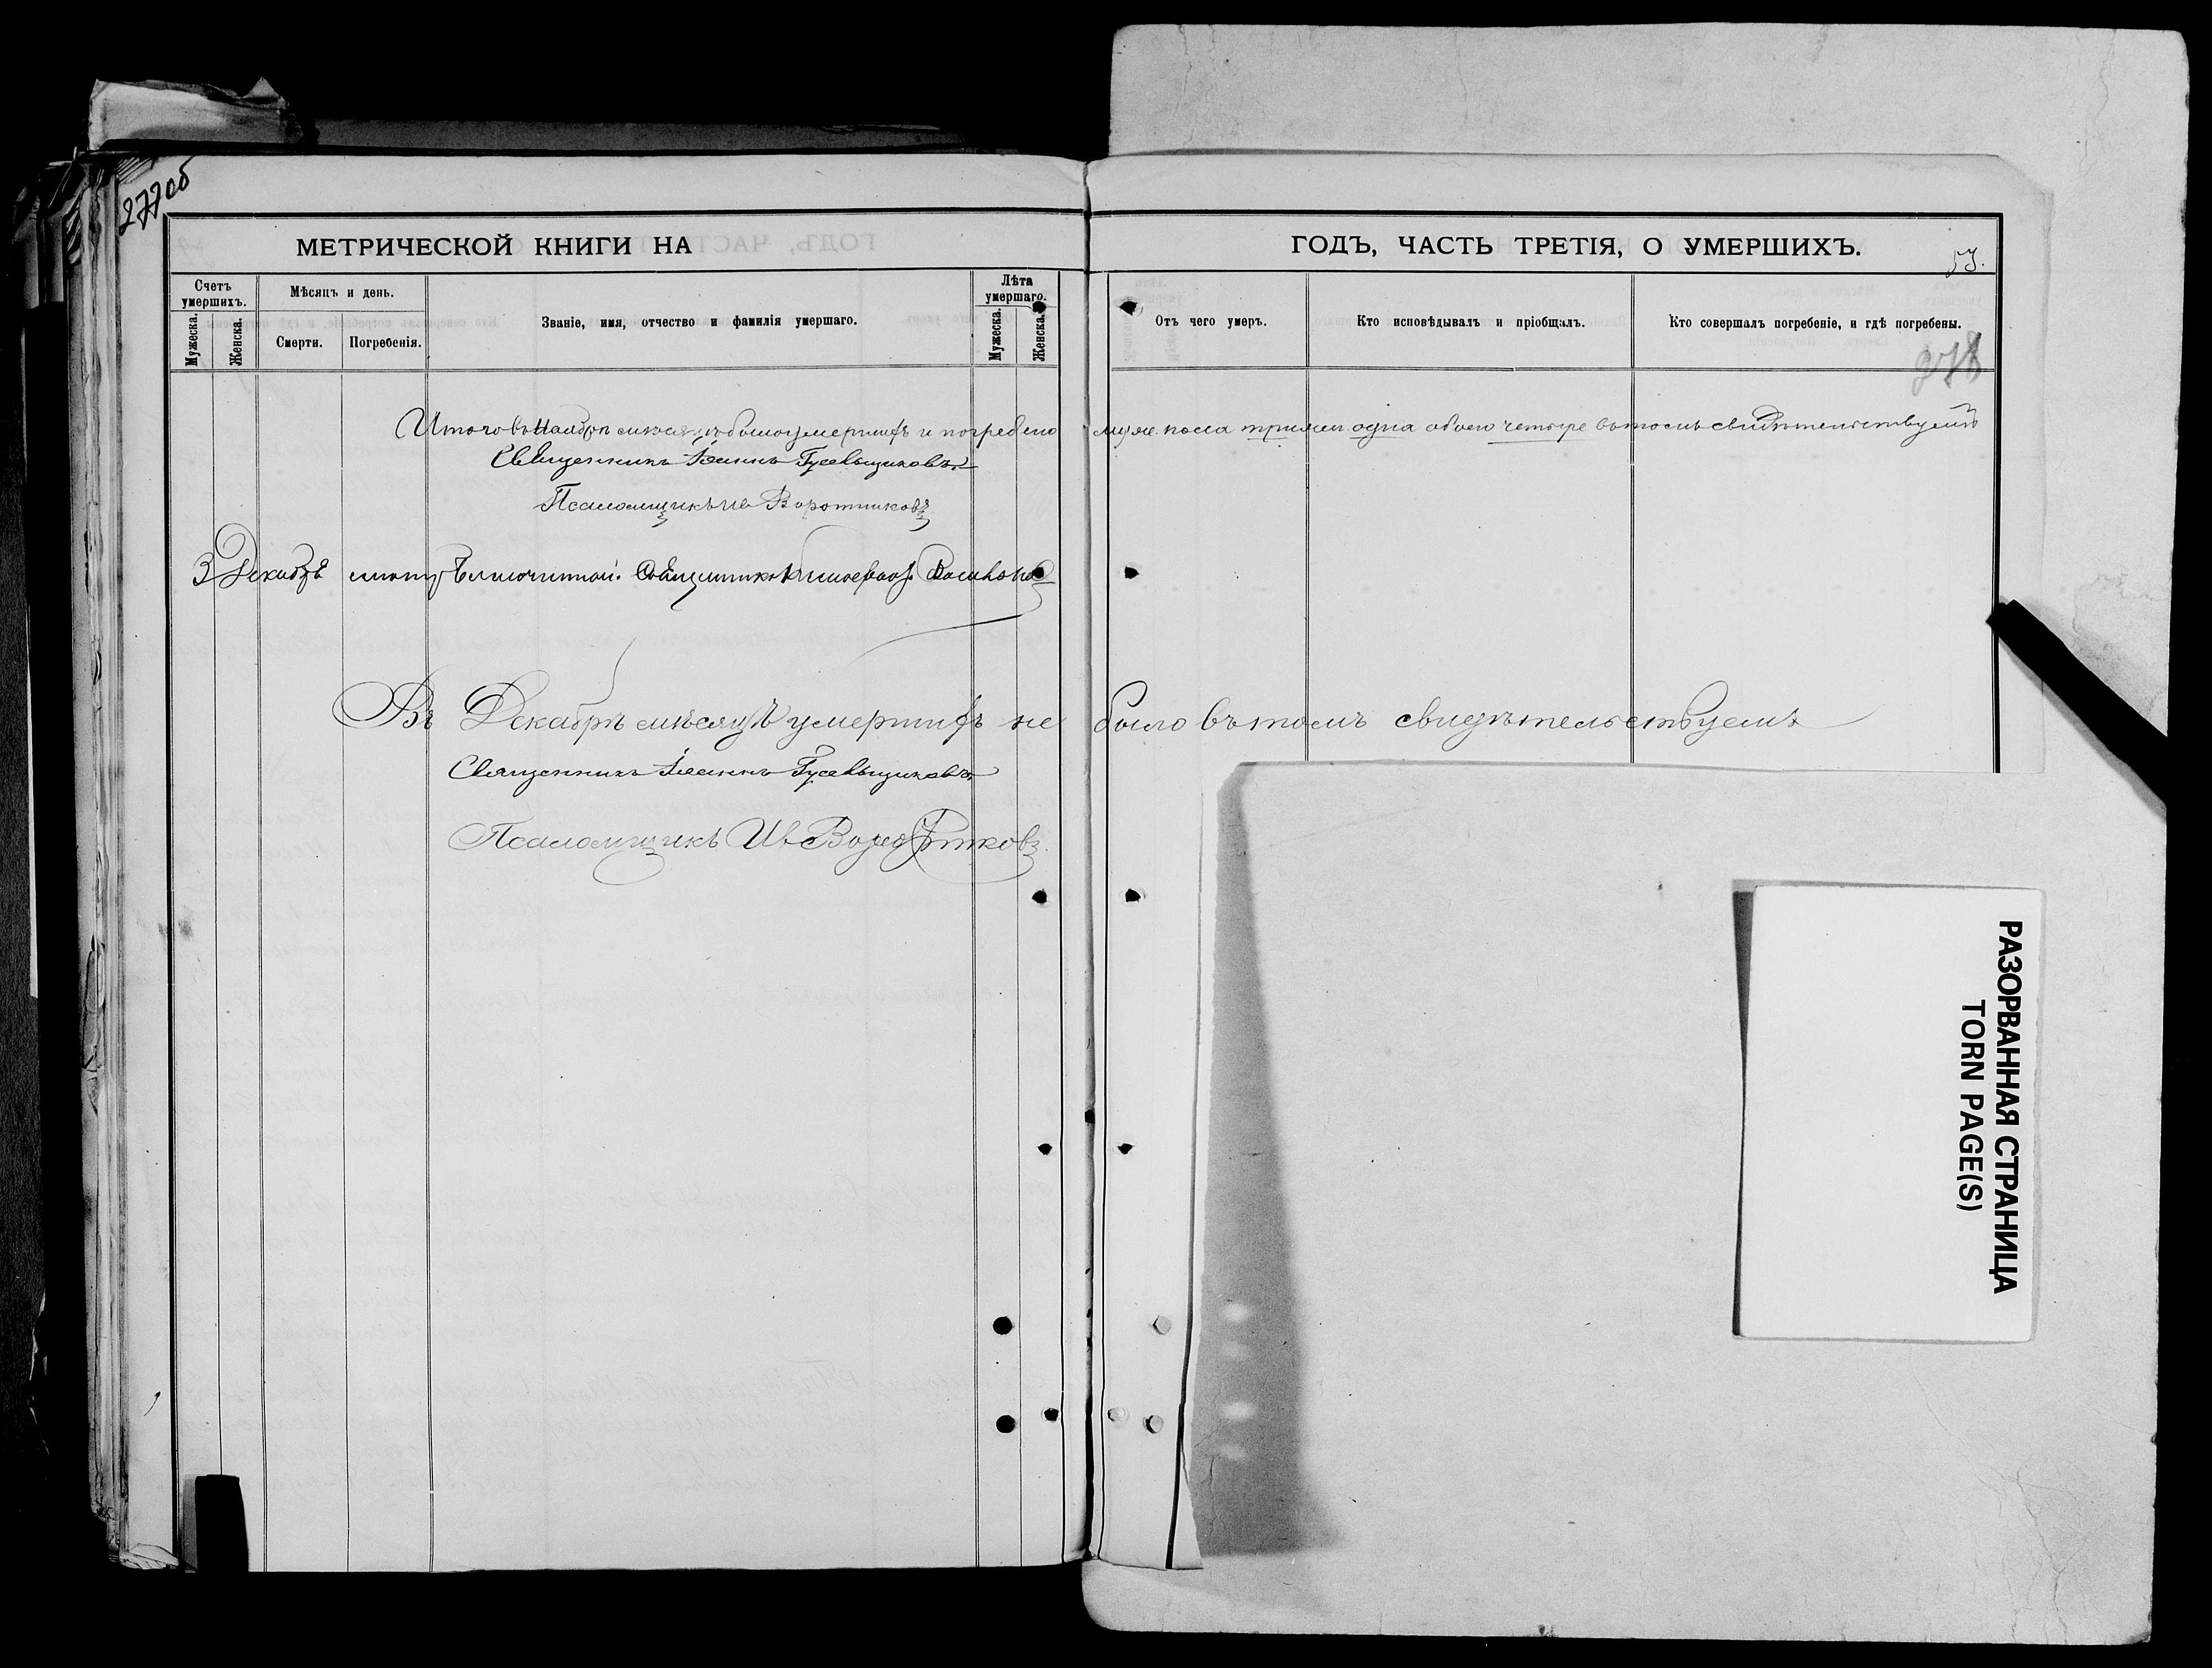 277об
МЕТРИЧЕСКОЙ КНИГИ НА ГОДЪ, ЧАСТЬ ТРЕТІЯ, О УМЕРШИХЪ.
53.
Счетъ умершихъ.
Мужеска.
Женска.
Мѣсяцъ и день.
Смерти.
Погребенія.
Званіе, имя, отчество и фамилія умершаго.
Лѣта умершаго.
Мужеска.
Женска.
Отъ чего умеръ.
Кто исповѣдывалъ и пріобщалъ.
Кто совершалъ погребеніе, и гдѣ погребены.
278
Итого въ Ноябрѣ мѣсяцѣ было умершихъ и погребено муж. пола три жен. одна обоего четыре въ томъ свидѣтельствуемъ
Священникъ Іоаннъ Гусельщиковъ
Псаломщикъ Ив Воротниковъ
3 Декабря смотрѣлъ Священникъ
Въ Декабрѣ мѣсяцѣ умершихъ не было въ томъ свидѣтельствуемъ
Священникъ Іоаннъ Гусельщиковъ
Псаломщикъ Ив Воротниковъ.
РАЗОРВАННАЯ СТРАНИЦА
TORN PAGE(S)